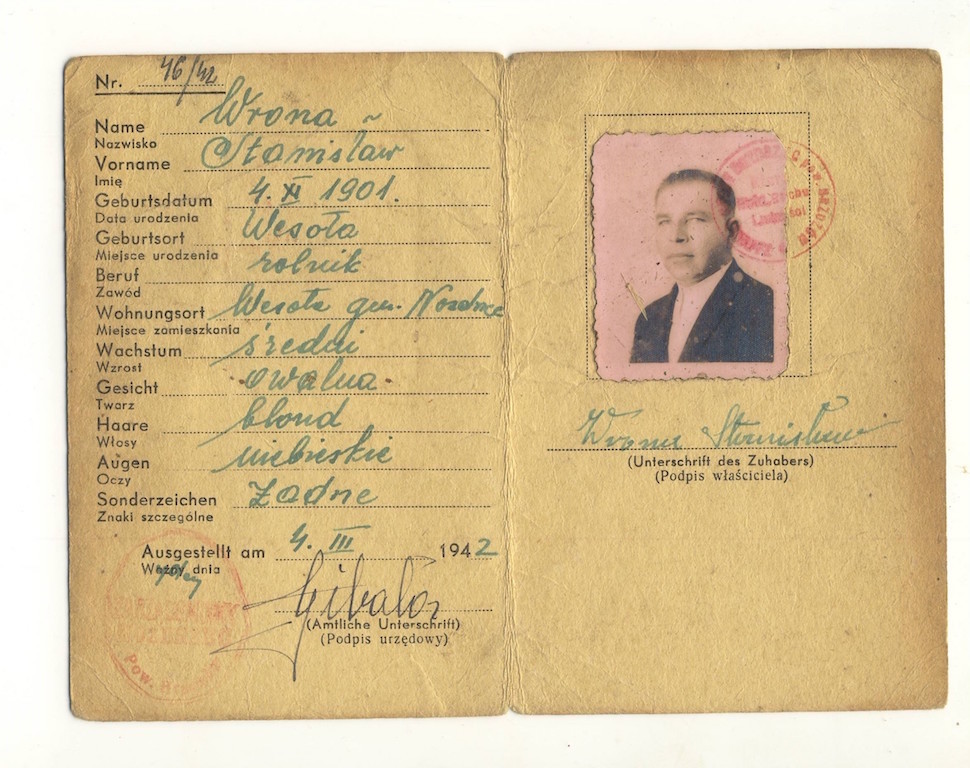 Nr. 46/42
Name Wrona
Nazwisko
Vorname Stanisław
Imię
Geburtsdatum 4. XI 1901.
Data urodzenia
Geburtsort Wesoła
Miejsce urodzenia
Beruf rolnik
Zawód
Wohnungsort Wesoła gm. Nozdrzec
Miejsce zamieszkania
Wachstum średni
Wzrost
Gesicht owalna
Twarz
Haare blond
Włosy
Augen niebieskie
Oczy
Sonderzeichen Żadne
Znaki szczególne
Ausgestellt am 4. III 1942
Ważny dnia
(Amtliche Unterschrift)
(Podpis urzędowy)
Pow.
Wrona Stanisław
(Unterschrift des Zuhabers)
(Podpis właściciela)